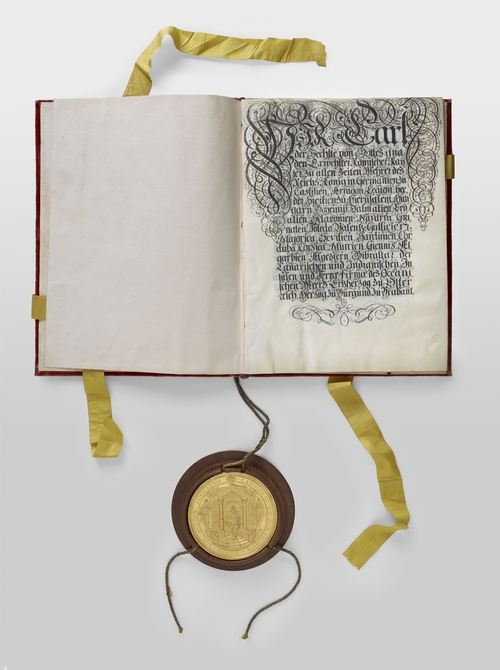 Wir Carl
der Sechste von Gottes gna
den Erwehlter Römischer Kay
ser zu allen Zeiten Mehrer des
Reichs König in Germanien zu
Castilien, Arragon Legion bey
der Sicilien zu Hierusalem Hun
garn Böheimb Dalmatien Cro
atien Sclavonien Navarra Gra
naten Toledo Valentz Gallicien
Majorica Sevilien Sardinien Cor
duba Corsica Murcien Giennis Al
garbien Algeziern Gibraltar der
Canarischen und Indianischen In
sulen und Terræ firmæ des Oceani
schen Meers Ertzherzog zu Öster
reich Hertzog zu Burgund zu Braband